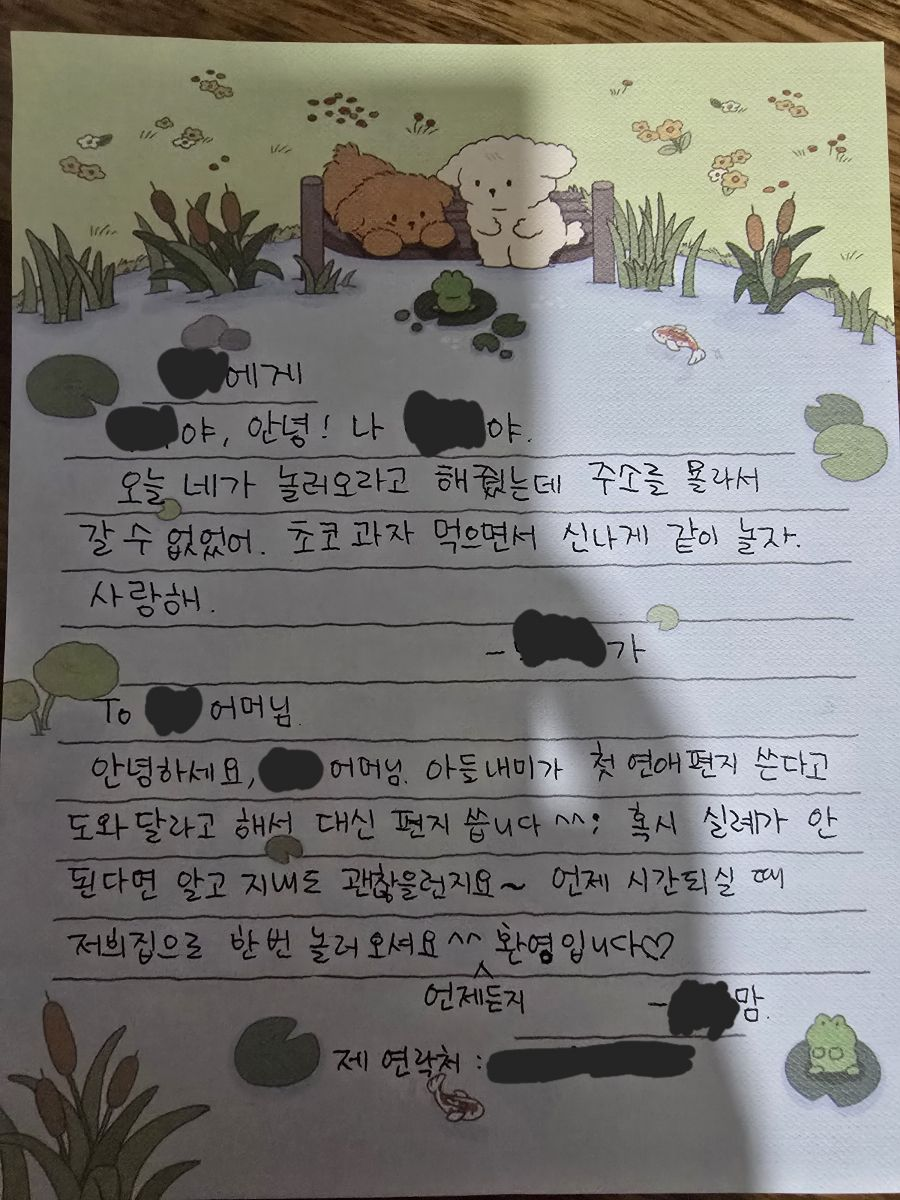 에게
야, 안녕! 나 야.
오늘 네가 놀러오라고 해줬는데 주소를 몰라서
갈 수 없었어. 초코과자 먹으면서 신나게 같이 놀자.
사랑해.
- 가
To 어머님.
안녕하세요, 어머님. 아들내미가 첫 연애편지 쓴다고
도와달라고 해서 대신 편지 씁니다 ^^; 혹시 실례가 안
된다면 알고 지내도 괜찮을런지요~ 언제 시간되실 때
저희집으로 한번 놀러오셔요^^ 환영입니다♡
언제든지
- 맘.
제 연락처 :